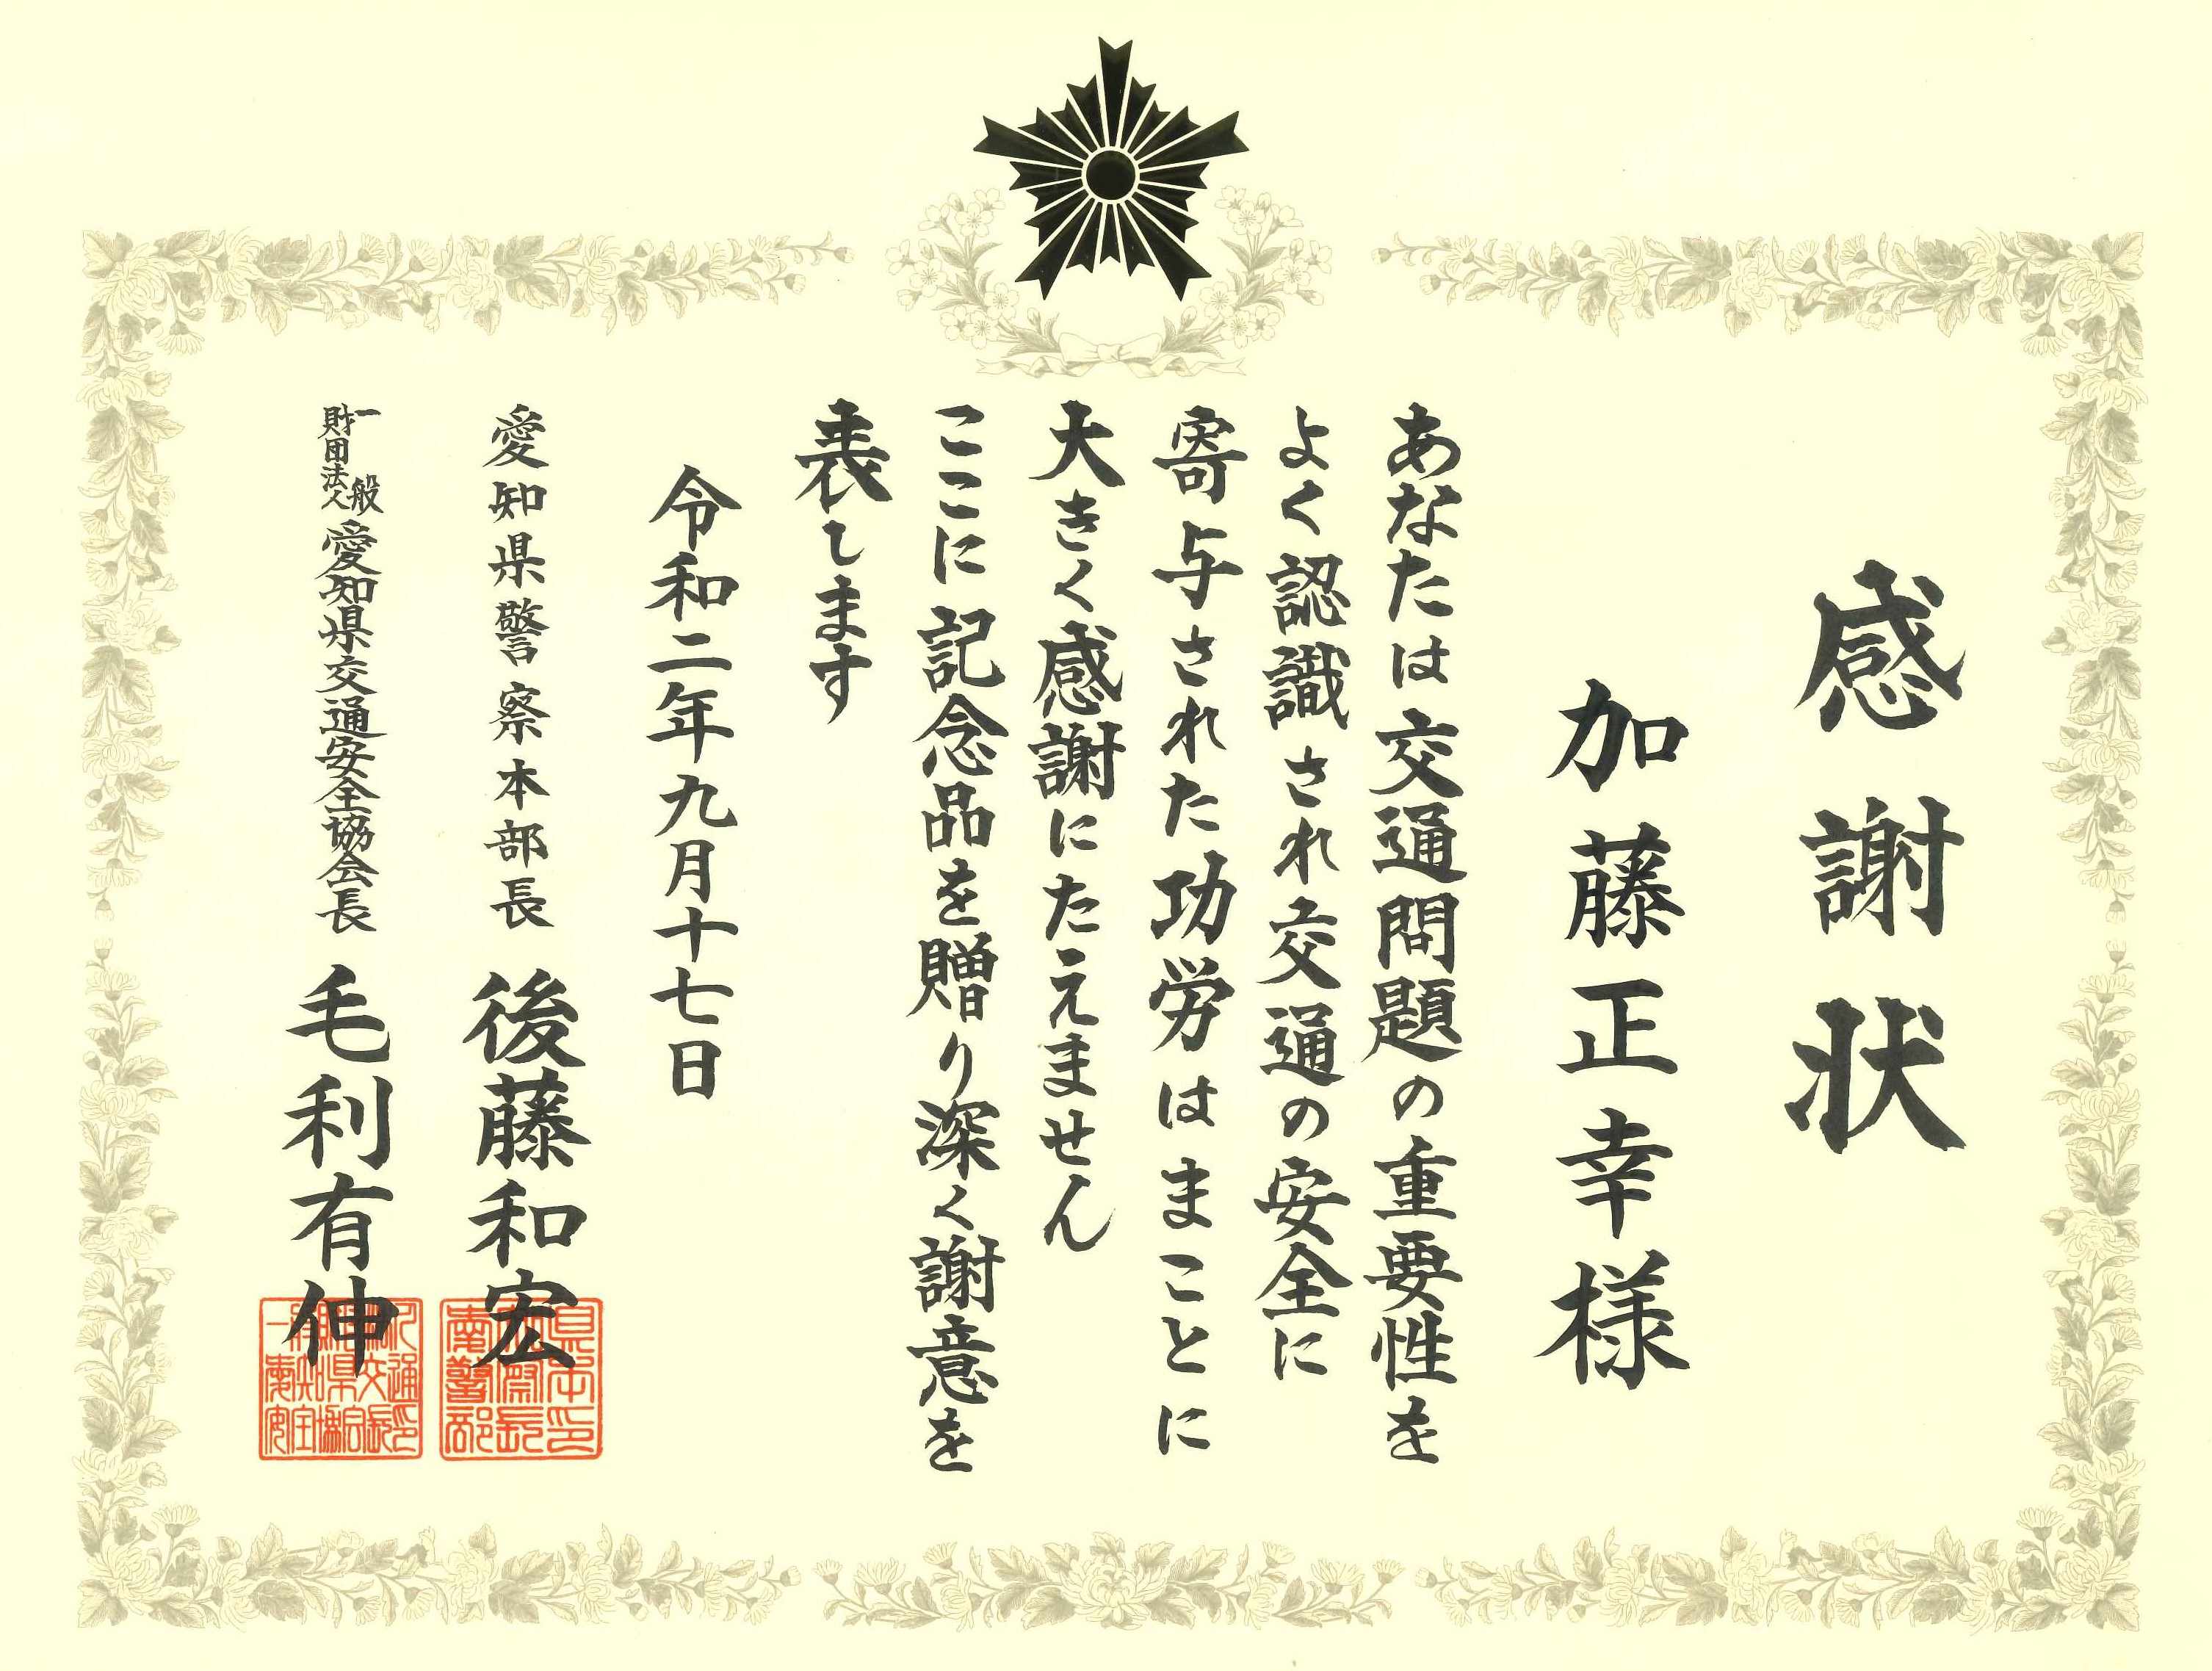 感謝状
加藤正幸様
あなたは交通問題の重要性を
よく認識され交通の安全に
寄与された功労はまことに
大きく感謝にたえません
ここに記念品を贈り深く謝意を
表します
令和二年九月十七日
愛知県警察本部長 後藤和宏
一般財団法人 愛知県交通安全協会長 毛利有伸